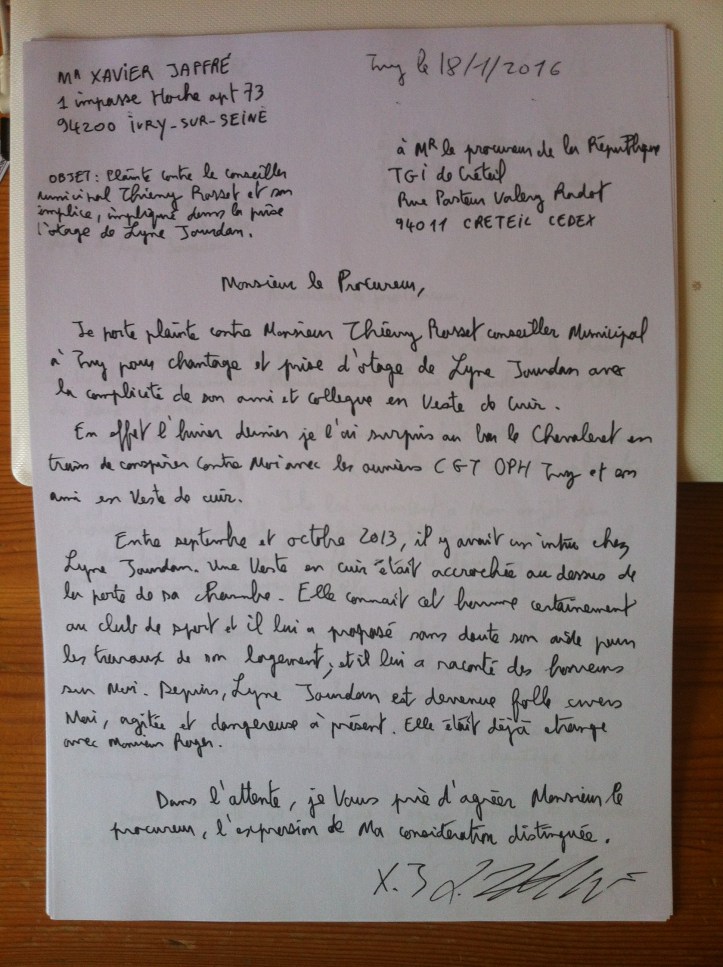 Mr XAVIER JAFFRÉ
1 impasse Hoche apt 73
94200 IVRY-SUR-SEINE
Ivry le 18/1/2016
à Mr le procureur de la République
TGI de Créteil
Rue Pasteur Valery Radot
94011 CRETEIL CEDEX
OBJET: Plainte contre le conseiller
municipal Thierry Rosset et son
complice, impliqué dans la prise
d'otage de Lyne Jourdan.
Monsieur le Procureur,
Je porte plainte contre Monsieur Thierry Rosset conseiller Municipal
à Ivry pour chantage et prise d'otage de Lyne Jourdan avec
la complicité de son ami et collegue en Veste de cuir.
En effet l'hiver dernier je l'ai surpris au bar le Chevaleret en
train de conspirer contre Moi avec les ouvriers CGT OPH Ivry et son
ami en Veste de cuir.
Entre septembre et octobre 2013, il y avait un intrus chez
Lyne Jourdan. Une Veste en cuir était accrochée au dessus de
la porte de sa chambre. Elle connait cet homme certainement
au club de sport et il lui a proposé sans doute son aide pour
les travaux de son logement, et il lui a raconté des horreurs
sur Moi. Depuis, Lyne Jourdan est devenue folle envers
Moi, agitée et dangereuse à présent. Elle était déjà etrange
avec Monsieur Royer.
Dans l'attente, je Vous prie d'agréer Monsieur le
procureur, l'expression de Ma consideration distinguée.
X. J